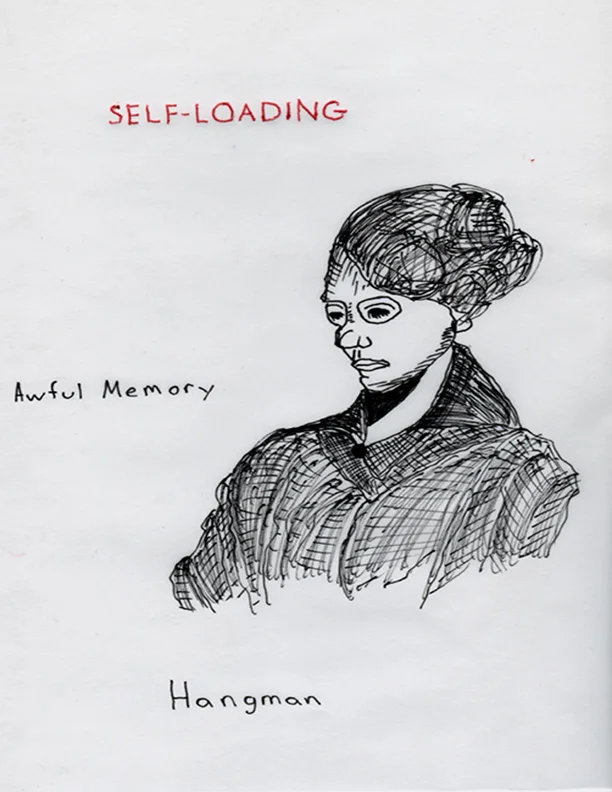 SELF-LOADING
Awful Memory
Hangman